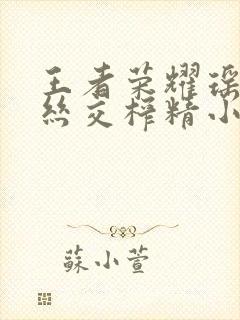 王者荣耀瑶
丝交榨精小
蘇小萱